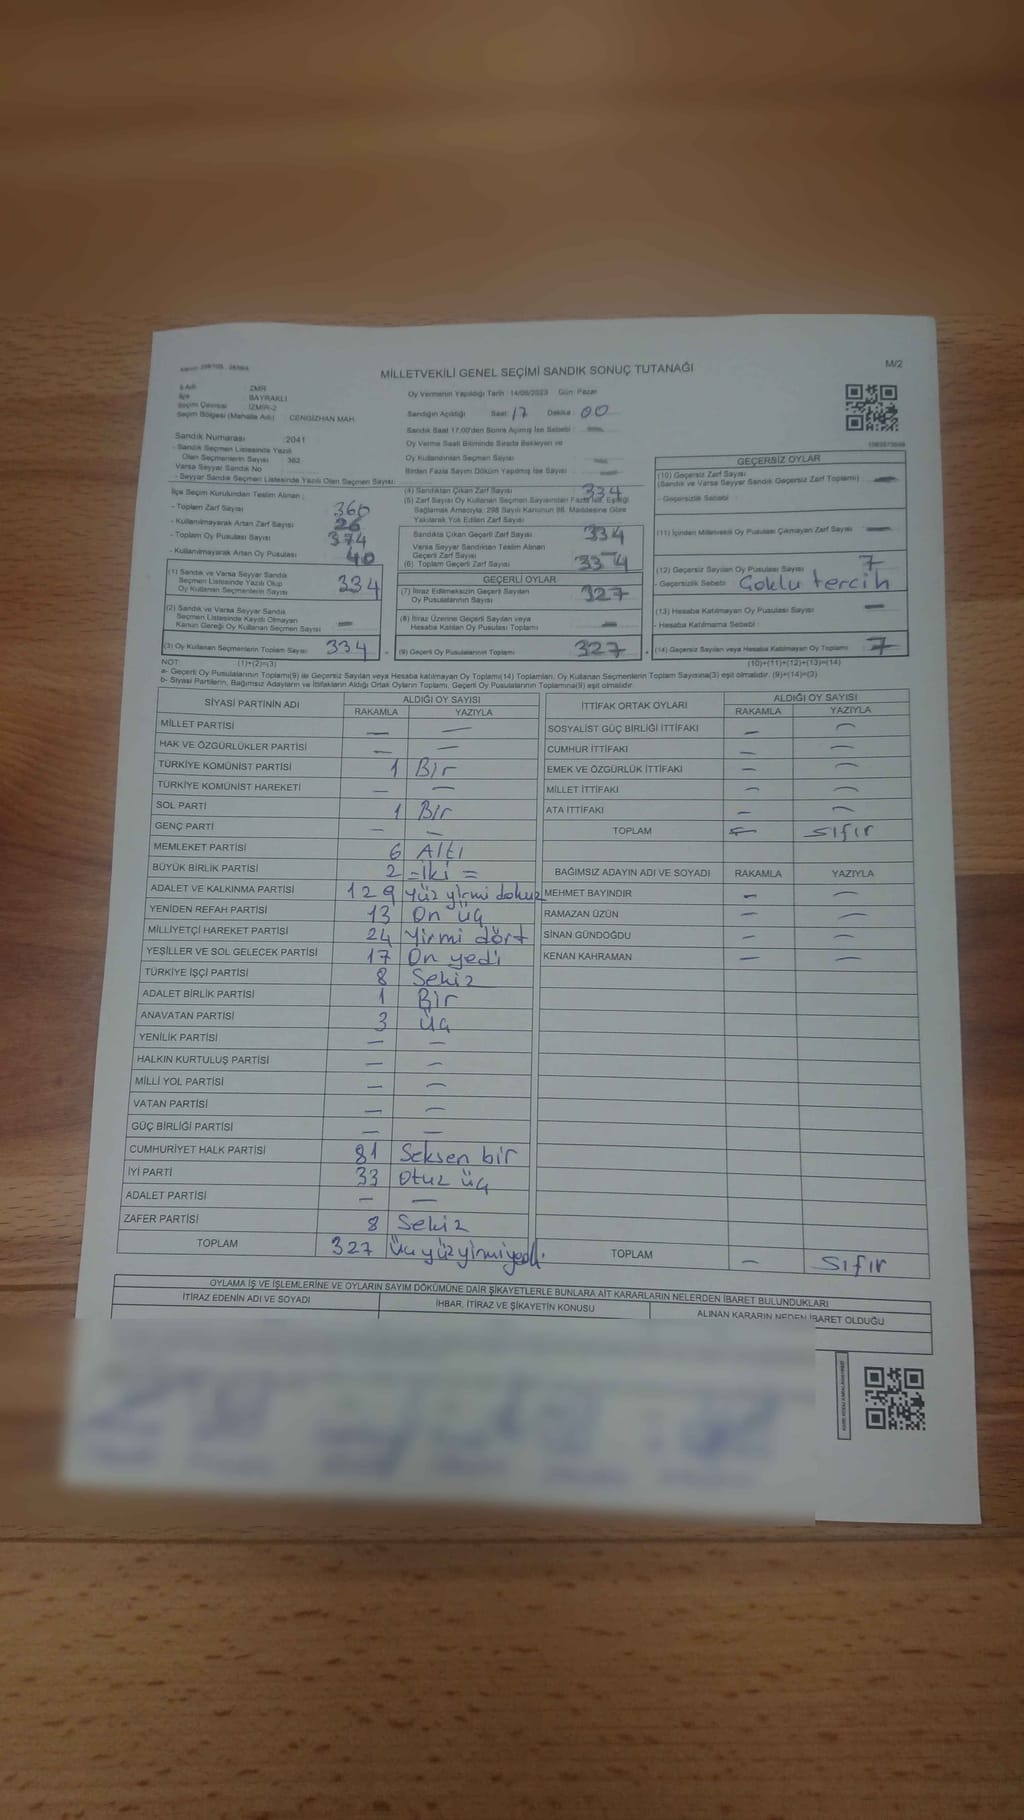 M/2
MİLLETVEKİLİ GENEL SEÇİMİ SANDIK SONUÇ TUTANAĞI
İli Adı : İZMİR
İlçe : BAYRAKLI
Seçim Çevresi : İZMİR-2
Seçim Bölgesi (Mahalle Adı) : CENGİZHAN MAH.
Sandık Numarası : 2041
- Sandık Seçmen Listesinde Yazılı
Olan Seçmenlerin Sayısı : 362
Varsa Seyyar Sandık No
- Seyyar Sandık Seçmen Listesinde Yazılı Olan Seçmen Sayısı:
İlçe Seçim Kurulundan Teslim Alınan ;
- Toplam Zarf Sayısı 360
- Kullanılmayarak Artan Zarf Sayısı 26
- Toplam Oy Pusulası Sayısı 374
- Kullanılmayarak Artan Oy Pusulası 40
(1) Sandık ve Varsa Seyyar Sandık
Seçmen Listesinde Yazılı Olup
Oy Kullanan Seçmenlerin Sayısı 334
(2) Sandık ve Varsa Seyyar Sandık
Seçmen Listesinde Kayıtlı Olmayan
Kanun Gereği Oy Kullanan Seçmen Sayısı —
(3) Oy Kullanan Seçmenlerin Toplam Sayısı 334
Oy Vermenin Yapıldığı Tarih : 14/05/2023 Gün: Pazar
Sandığın Açıldığı Saat : 17 Dakika : 00
Sandık Saat 17:00'den Sonra Açılmış İse Sebebi : —
Oy Verme Saati Bitiminde Sırada Bekleyen ve
Oy Kullandırılan Seçmen Sayısı —
Birden Fazla Sayım Döküm Yapılmış İse Sayısı —
(4) Sandıktan Çıkan Zarf Sayısı 334
(5) Zarf Sayısı Oy Kullanan Seçmen Sayısından Fazla İse, Eşitliği
Sağlamak Amacıyla, 298 Sayılı Kanunun 98. Maddesine Göre
Yakılarak Yok Edilen Zarf Sayısı
Sandıkta Çıkan Geçerli Zarf Sayısı 334
Varsa Seyyar Sandıktan Teslim Alınan
Geçerli Zarf Sayısı —
(6) Toplam Geçerli Zarf Sayısı 334
GEÇERLİ OYLAR
(7) İtiraz Edilmeksizin Geçerli Sayılan
Oy Pusulalarının Sayısı 327
(8) İtiraz Üzerine Geçerli Sayılan veya
Hesaba Katılan Oy Pusulası Toplamı —
(9) Geçerli Oy Pusulalarının Toplamı 327
GEÇERSİZ OYLAR
(10) Geçersiz Zarf Sayısı
(Sandık ve Varsa Seyyar Sandık Geçersiz Zarf Toplamı) —
- Geçersizlik Sebebi :
(11) İçinden Milletvekili Oy Pusulası Çıkmayan Zarf Sayısı —
(12) Geçersiz Sayılan Oy Pusulası Sayısı 7
- Geçersizlik Sebebi : Çoklu tercih
(13) Hesaba Katılmayan Oy Pusulası Sayısı —
- Hesaba Katılmama Sebebi :
(14) Geçersiz Sayılan veya Hesaba Katılmayan Oy Toplamı 7
NOT: (1)+(2)=(3) (10)+(11)+(12)+(13)=(14)
a- Geçerli Oy Pusulalarının Toplamı(9) ile Geçersiz Sayılan veya Hesaba katılmayan Oy Toplamı(14) Toplamları, Oy Kullanan Seçmenlerin Toplam Sayısına(3) eşit olmalıdır. (9)+(14)=(3)
b- Siyasi Partilerin, Bağımsız Adayların ve İttifakların Aldığı Ortak Oyların Toplamı, Geçerli Oy Pusulalarının Toplamına(9) eşit olmalıdır.
SİYASİ PARTİNİN ADI ALDIĞI OY SAYISI
RAKAMLA YAZIYLA
MİLLET PARTİSİ — —
HAK VE ÖZGÜRLÜKLER PARTİSİ — —
TÜRKİYE KOMÜNİST PARTİSİ 1 Bir
TÜRKİYE KOMÜNİST HAREKETİ — —
SOL PARTİ 1 Bir
GENÇ PARTİ — —
MEMLEKET PARTİSİ 6 Altı
BÜYÜK BİRLİK PARTİSİ 2 =İki=
ADALET VE KALKINMA PARTİSİ 129 Yüz yirmi dokuz
YENİDEN REFAH PARTİSİ 13 On üç
MİLLİYETÇİ HAREKET PARTİSİ 24 Yirmi dört
YEŞİLLER VE SOL GELECEK PARTİSİ 17 On yedi
TÜRKİYE İŞÇİ PARTİSİ 8 Sekiz
ADALET BİRLİK PARTİSİ 1 Bir
ANAVATAN PARTİSİ 3 Üç
YENİLİK PARTİSİ — —
HALKIN KURTULUŞ PARTİSİ — —
MİLLİ YOL PARTİSİ — —
VATAN PARTİSİ — —
GÜÇ BİRLİĞİ PARTİSİ — —
CUMHURİYET HALK PARTİSİ 81 Seksen bir
İYİ PARTİ 33 Otuz üç
ADALET PARTİSİ — —
ZAFER PARTİSİ 8 Sekiz
TOPLAM 327 Üç yüz yirmi yedi
İTTİFAK ORTAK OYLARI ALDIĞI OY SAYISI
RAKAMLA YAZIYLA
SOSYALİST GÜÇ BİRLİĞİ İTTİFAKI — —
CUMHUR İTTİFAKI — —
EMEK VE ÖZGÜRLÜK İTTİFAKI — —
MİLLET İTTİFAKI — —
ATA İTTİFAKI — —
TOPLAM — Sıfır
BAĞIMSIZ ADAYIN ADI VE SOYADI RAKAMLA YAZIYLA
MEHMET BAYINDIR — —
RAMAZAN ÜZÜN — —
SİNAN GÜNDOĞDU — —
KENAN KAHRAMAN — —
TOPLAM — Sıfır
OYLAMA İŞ VE İŞLEMLERİNE VE OYLARIN SAYIM DÖKÜMÜNE DAİR ŞİKAYETLERLE BUNLARA AİT KARARLARIN NELERDEN İBARET BULUNDUKLARI
İTİRAZ EDENİN ADI VE SOYADI İHBAR, İTİRAZ VE ŞİKAYETİN KONUSU ALINAN KARARIN NEDEN İBARET OLDUĞU